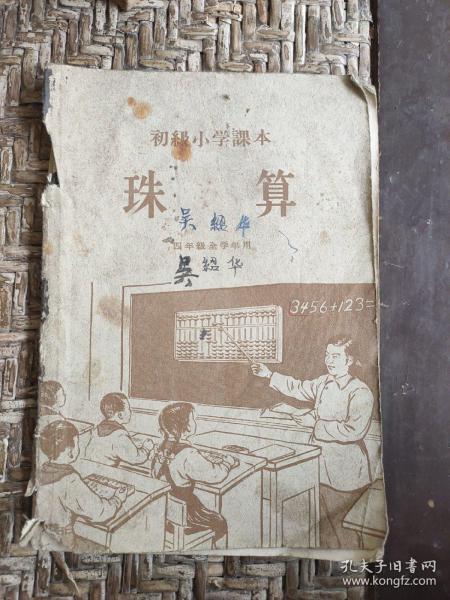 初級小学課本
珠算
吴紹华
四年級全学年用
吴紹华
3456+123=
孔夫子旧书网
www.kongfz.com